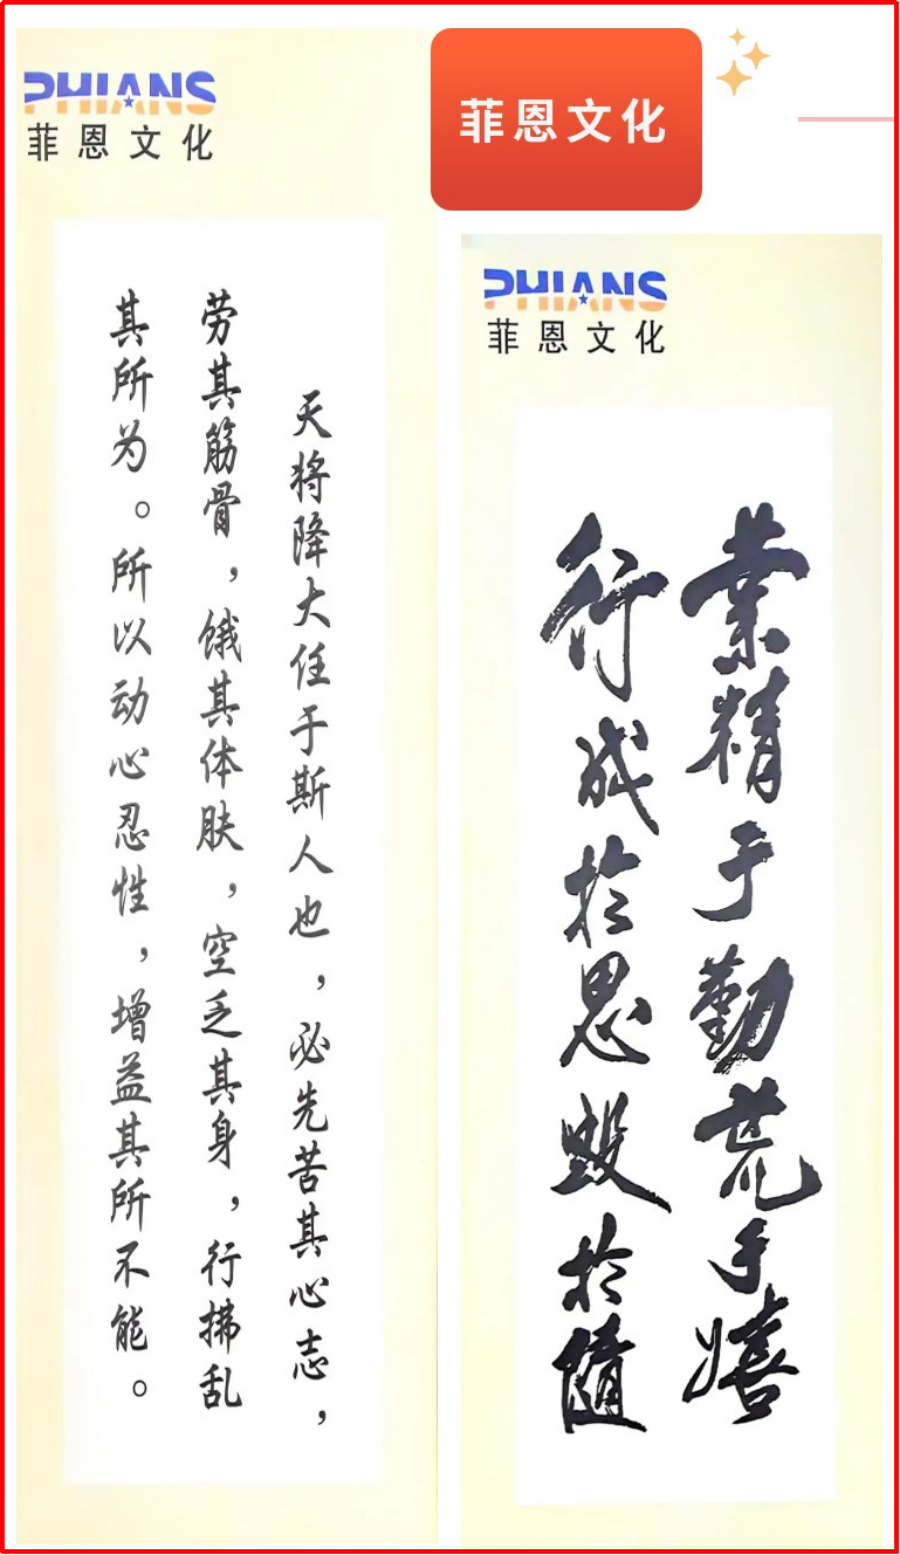 PHIANS
菲恩文化
天将降大任于斯人也，必先苦其心志，
劳其筋骨，饿其体肤，空乏其身，行拂乱
其所为。所以动心忍性，增益其所不能。
菲恩文化
PHIANS
菲恩文化
業精于勤荒于嬉
行成於思毁於随